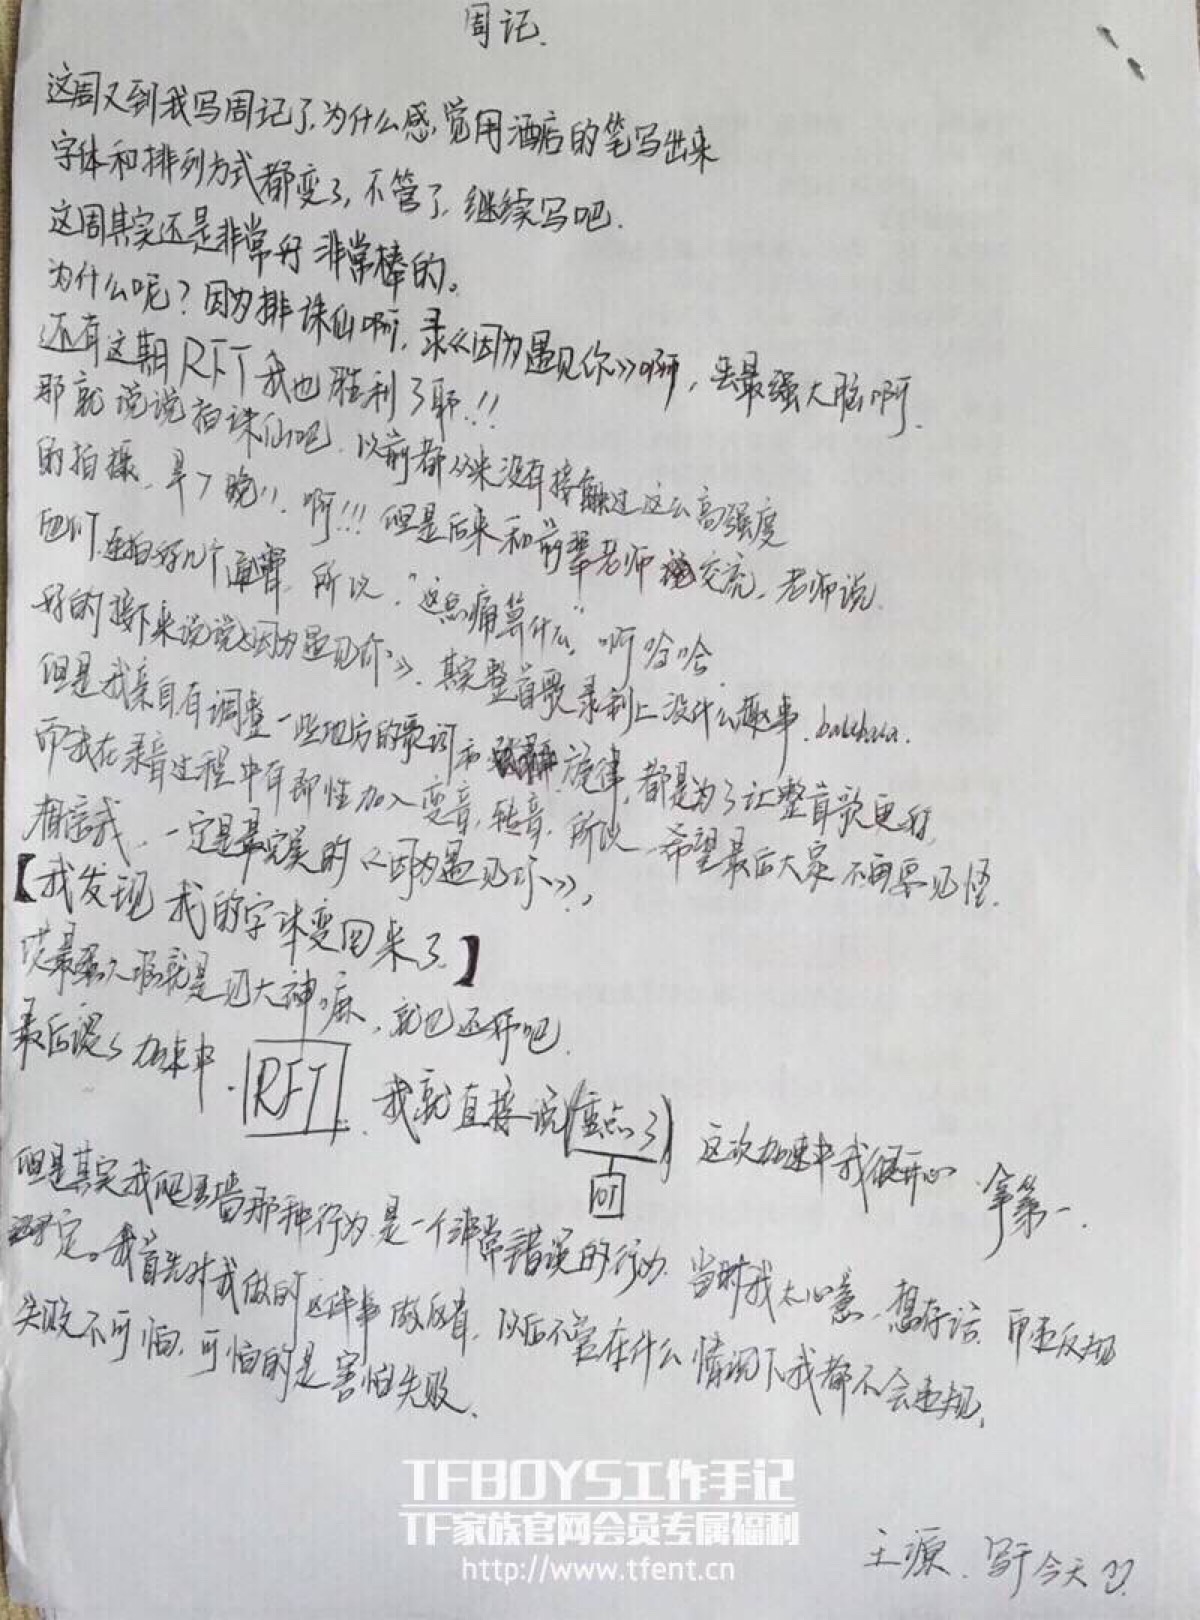 周记.
这周又到我写周记了,为什么感觉用酒店的笔写出来
字体和排列方式都变了,不管了,继续写吧.
这周其实还是非常好非常棒的。
为什么呢?因为排诛仙啊,录《因为遇见你》啊,去最强大脑啊.
还有这期RFT我也胜利了耶!!!
那就说说拍诛仙吧.以前都从来没有接触过这么高强度
的拍摄,早7晚11,啊!!!但是后来和前辈老师交流,老师说
他们连拍好几个通宵,所以,“这点痛算什么”啊哈哈.
好的接下来说说《因为遇见你》,其实整首歌录制上没什么趣事.balabala.
但是我亲自有调整一些地方的歌词和旋律,都是为了让整首歌更好,
而我在录音过程中有即性加入变音,转音,所以希望最后大家不要见怪.
相信我,一定是最完美的《因为遇见你》,
【我发现我的字体变回来了.】
最强大脑就是见大神嘛,就也还好吧.
最后说 加速中.RFT.我就直接说重点了 这次加速中我很开心 拿第一.
10T
但是其实我爬墙那种行为是一个非常错误的行为.当时我太,想存活,而违反规
定。我首先对我做的这件事做反省,以后不管在什么情况下我都不会违规,
失败不可怕,可怕的是害怕失败.
王源.写于今天
TFBOYS工作手记
TF家族官网会员专属福利
http://www.tfent.cn